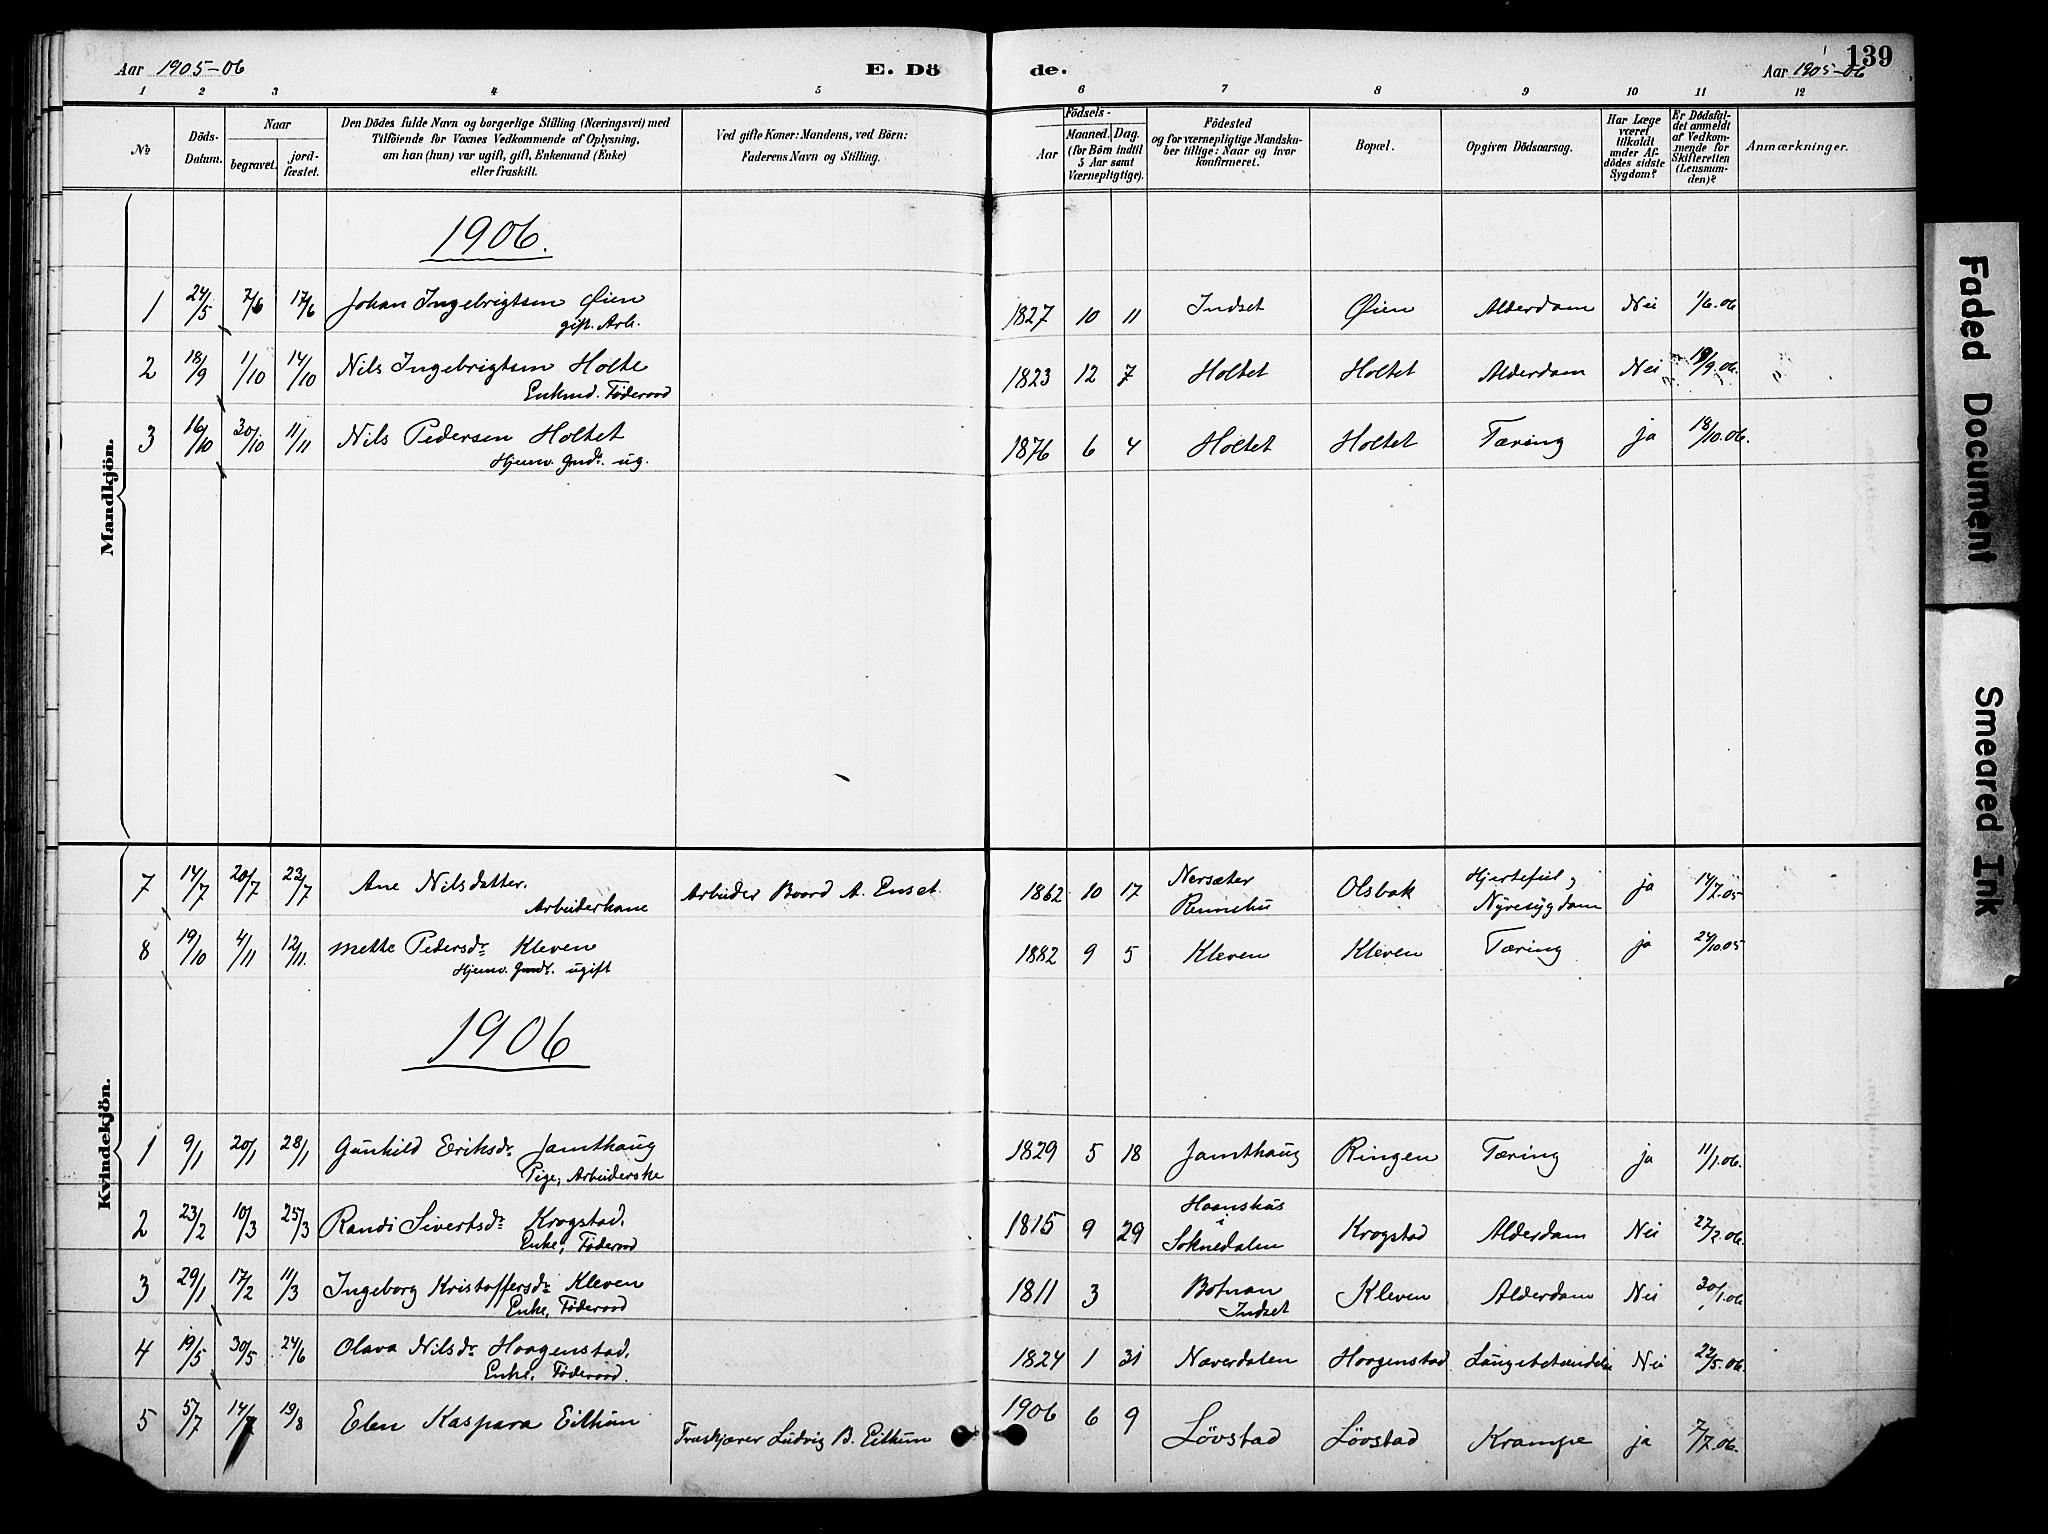 Aar 1905-06
E. Dö
de.
139
Aar 1905-06
1 2 3 4 5 6 7 8 9 10 11 12
No
Döds-Datum.
Naar
begravet.
jord-fæstet.
Den Dödes fulde Navn og borgerlige Stilling (Næringsvei) med
Tilföiende for Voxnes Vedkommende af Oplysning,
om han (hun) var ugift, gift, Enkemand (Enke)
eller fraskilt.
Ved gifte Koner: Mandens, ved Börn:
Faderens Navn og Stilling.
Födsels-
Aar
Maaned. Dag.
(for Börn indtil
5 Aar samt
Værnepligtige).
Födested
og for værnepligtige Mandska-
ber tillige: Naar og hvor
konfirmeret.
Bopæl.
Opgiven Dödsaarsag.
Har Læge
været
tilkaldt
under Af-
dödes sidste
Sygdom?
Er Dödsfal-
det anmeldt
af Vedkom-
mende for
Skifteretten
(Lensman-
den)?
Anmærkninger.
Mandkjön.
1906.
1 24/5 7/6 17/6 Johan Ingebrigtsen Øien 1827 10 11 Indset Øien Alderdom Nei 1/6.06
gift. Arb.
2 18/9 1/10 14/10 Nils Ingebrigtsen Holte 1823 12 7 Holtet Holtet Alderdom Nei 19/9.06.
Enkmd. Föderaad
3 16/10 30/10 11/11 Nils Pedersen Holtet 1876 6 4 Holtet Holtet Tæring ja 18/10.06.
Hjemv. Gmds. ug.
Kvindekjön.
7 14/7 20/7 23/7 Ane Nilsdatter. Arbeider Baard A. Enset 1862 10 17 Nersæter Olsbak Hjertefeil, ja 14/7.05
Arbeiderkone Rennebu Nyresygdom
8 19/10 4/11 12/11. Mette Pedersdr Kleven 1882 9 5 Kleven Kleven Tæring ja 24/10.05
Hjemv. Gmdt. ugift
1906
1 9/1 20/1 28/1 Gunhild Eriksdr Jamthaug 1829 5 18 Jamthaug Ringen Tæring ja 11/1.06.
Pige, Arbeiderske
2 23/2 10/3 25/3 Randi Sivertsdr Krogstad. 1815 9 29 Haanshus i Soknedalen Krogstad Alderdom Nei 27/2.06.
Enke, Föderaad
3 29/1 17/2 11/3 Ingeborg Kristoffersdr Kleven 1811 3 Botnan Kleven Alderdom Nei 30/1.06
Enke, Föderaad Indset
4 19/5 30/5 24/6 Olava Nilsdr Haagenstad. 1824 1 31 Naverdalen Haagenstad Lungebetændelse Nei 22/5.06.
Enke, Föderaad.
5 5/7 14/7 19/8 Elen Kaspara Eithun Træskjærer Ludvig B. Eithun 1906 6 9 Lövstad Lövstad Krampe ja 7/7.06.
Faded Document
Smeared Ink